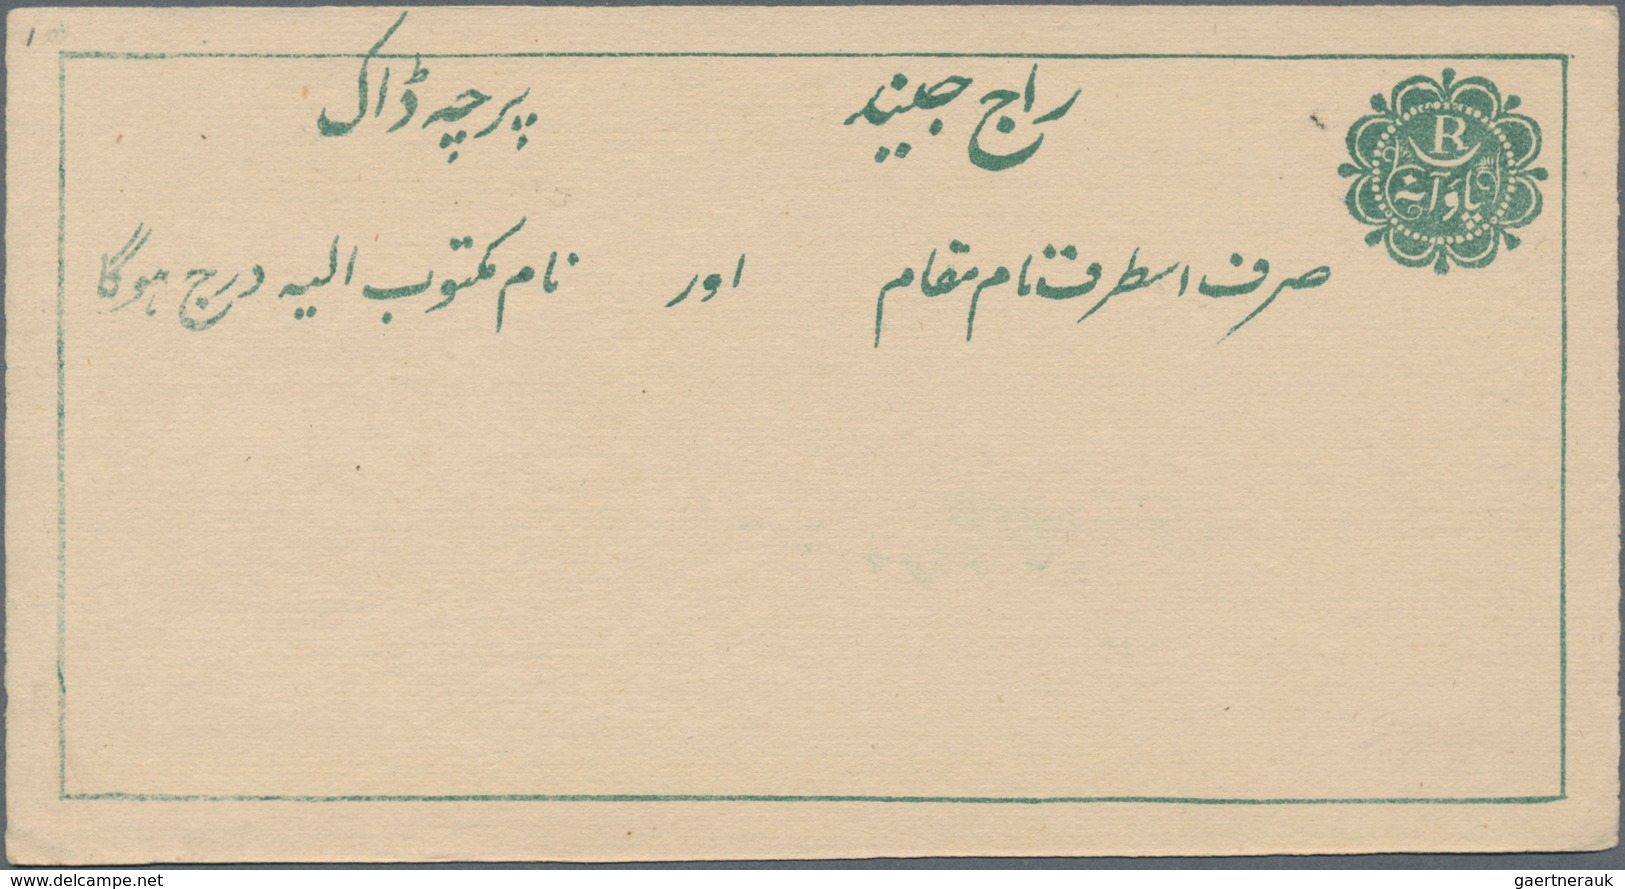 راج جیند پرچہ ڈاک
R
پاؤ آنہ
صرف اسطرف نام مقام اور نام مکتوب الیہ درج ہوگا
delcampe.net
gaertnerauk